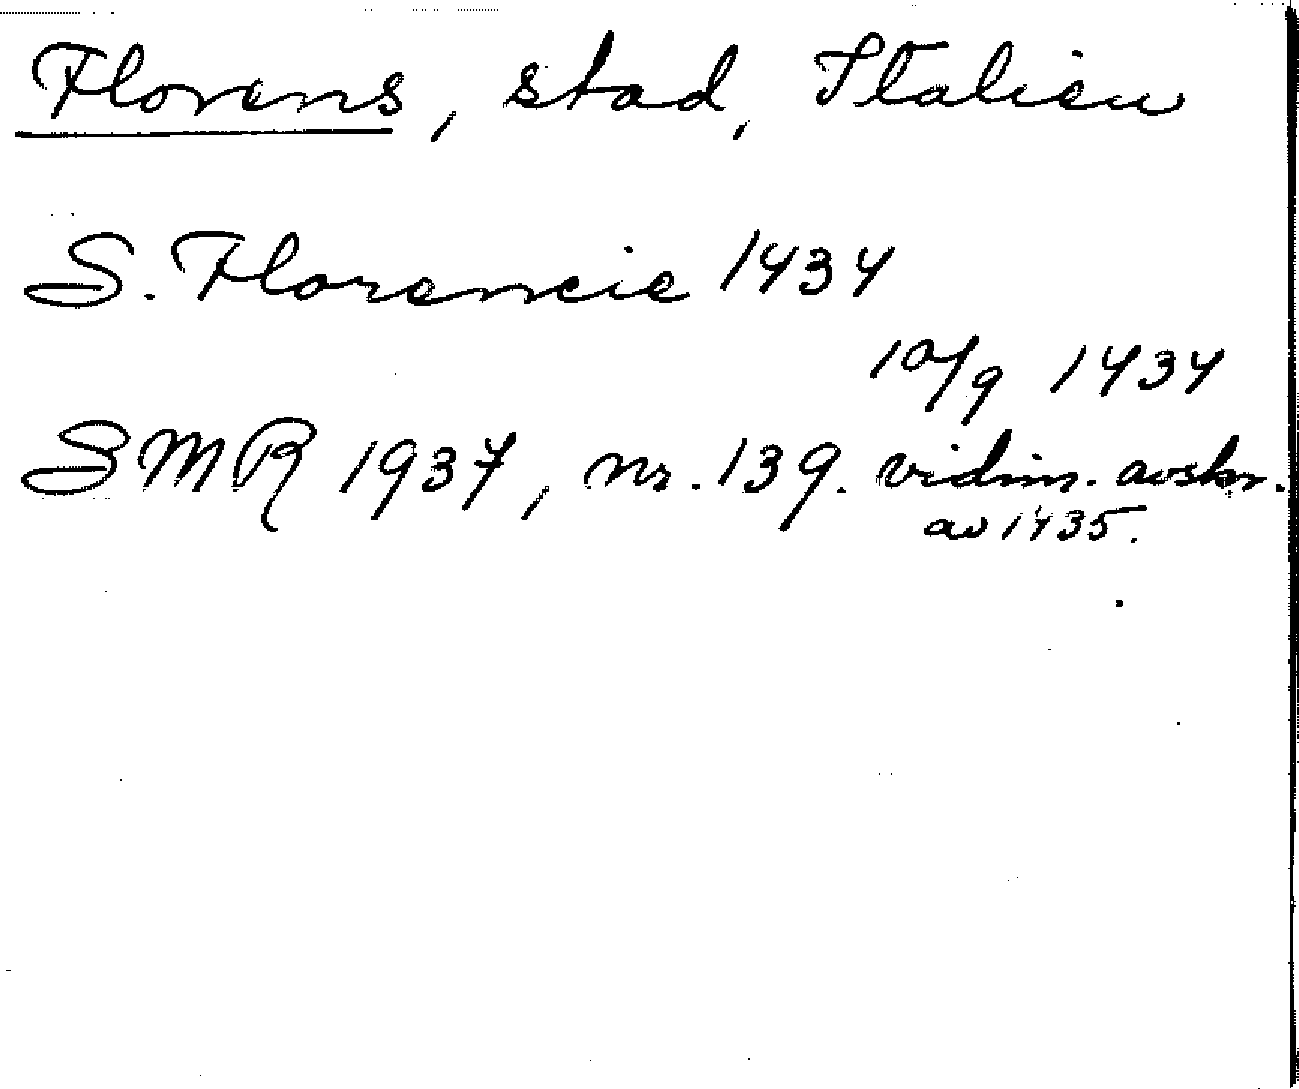 Florens, stad, Italien
S. Florencie 1434
10/9 1434
SMR 1937, nr. 139. vidim. avskr.
av 1435.